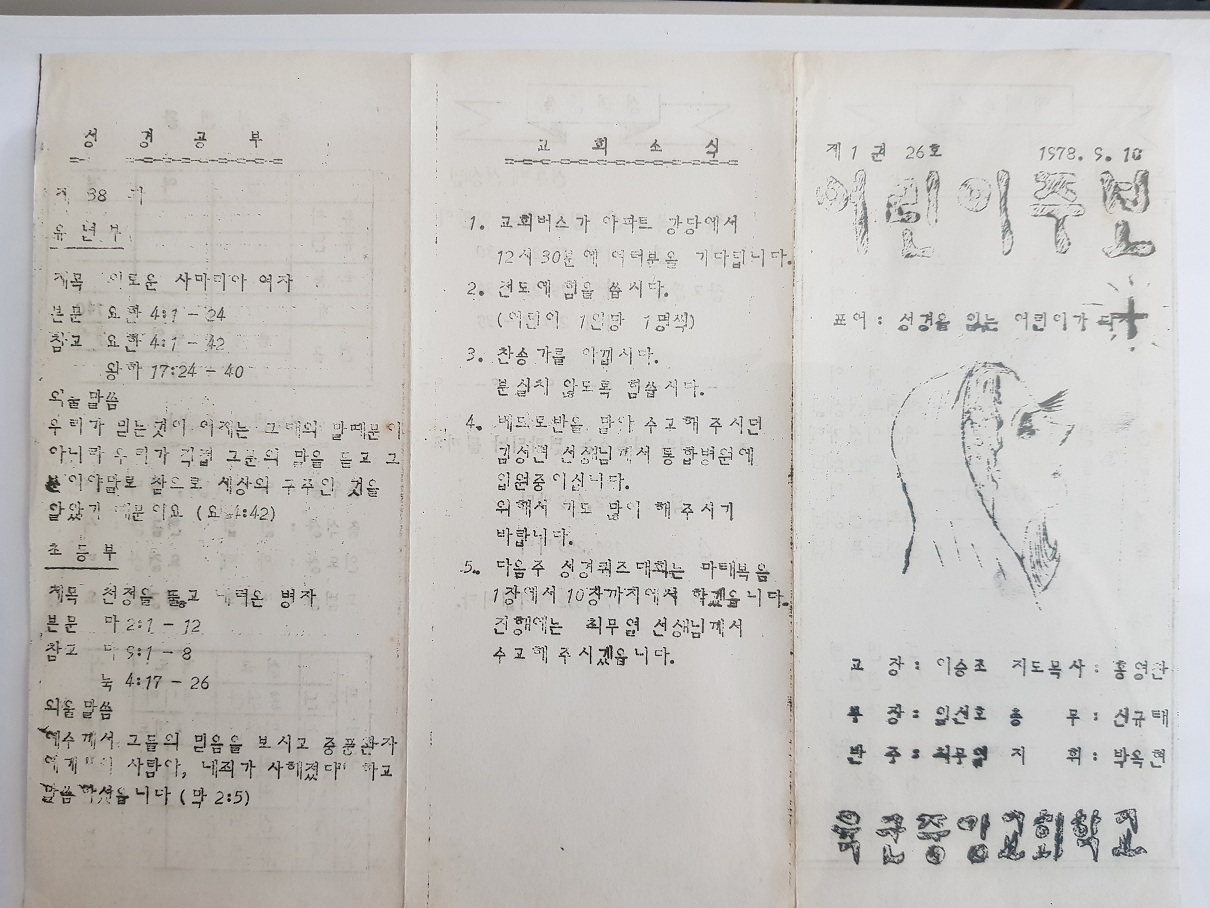 성경공부
제 38 과
유년부
제목 외로운 사마리아 여자
본문 요한 4:1 - 24
참고 요한 4:1 - 42
왕하 17:24 - 40
외울말씀
우리가 믿는것이 이제는 그대의 말때문이
아니라 우리가 직접 그분의 말을 듣고 그
분이야말로 참으로 세상의 구주인 것을
알았기 때문이요 (요 4:42)
초등부
제목 천정을 뚫고 내려온 병자
본문 마 2:1 - 12
참고 마 9:1 - 8
눅 4:17 - 26
외울말씀
예수께서 그들의 믿음을 보시고 중풍환자
에게 "이 사람아, 네죄가 사해졌다" 하고
말씀하셨읍니다 (막 2:5)
교회소식
1. 교회버스가 아파트 강당에서
12시 30분에 여러분을 기다립니다.
2. 전도에 힘을 씁시다.
(어린이 1인당 1명씩)
3. 찬송가를 아낍시다.
분실치 않도록 힘씁시다.
4. 베드로반을 맡아 수고해 주시던
선생님께서 통합병원에
입원중이십니다.
위해서 기도 많이 해 주시기
바랍니다.
5. 다음주 성경퀴즈 대회는 마태복음
1장에서 10장까지에서 하겠읍니다.
진행에는 최무열 선생님께서
수고해 주시겠읍니다.
제 1 권 26호 1978. 9. 10
어린이주보
표어 : 성경을 읽는 어린이가 되자
교 장 : 이승조 지도목사 : 홍영찬
부 장 : 임선호 총 무 : 신규태
반 주 : 최무열 지 휘 : 박옥현
중앙교회학교